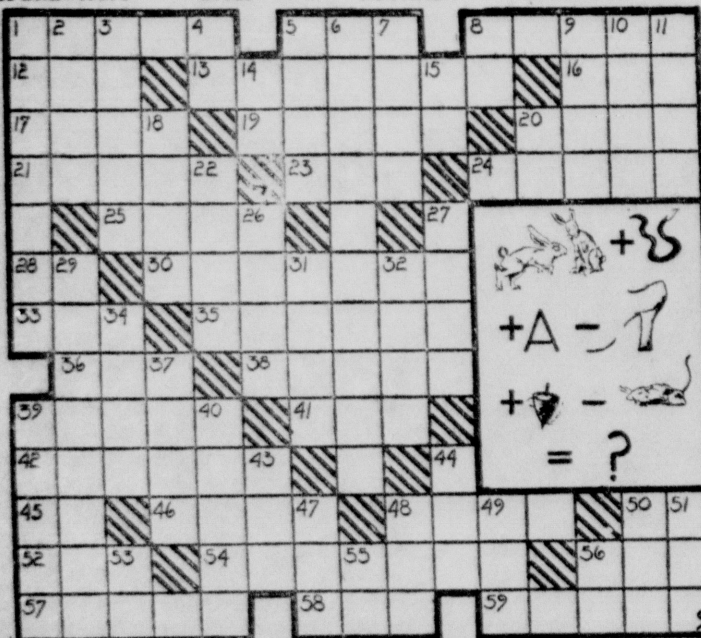 1 2 3 4 5 6 7 8 9 10 11
12 13 14 15 16
17 18 19 20
21 22 23 24
25 26 27
28 29 30 31 32
+
33 34 35
+A -
36 37 38
+ -
39 40 41
= ?
42 43 44
45 46 47 48 49 50 51
52 53 54 55 56
57 58 59